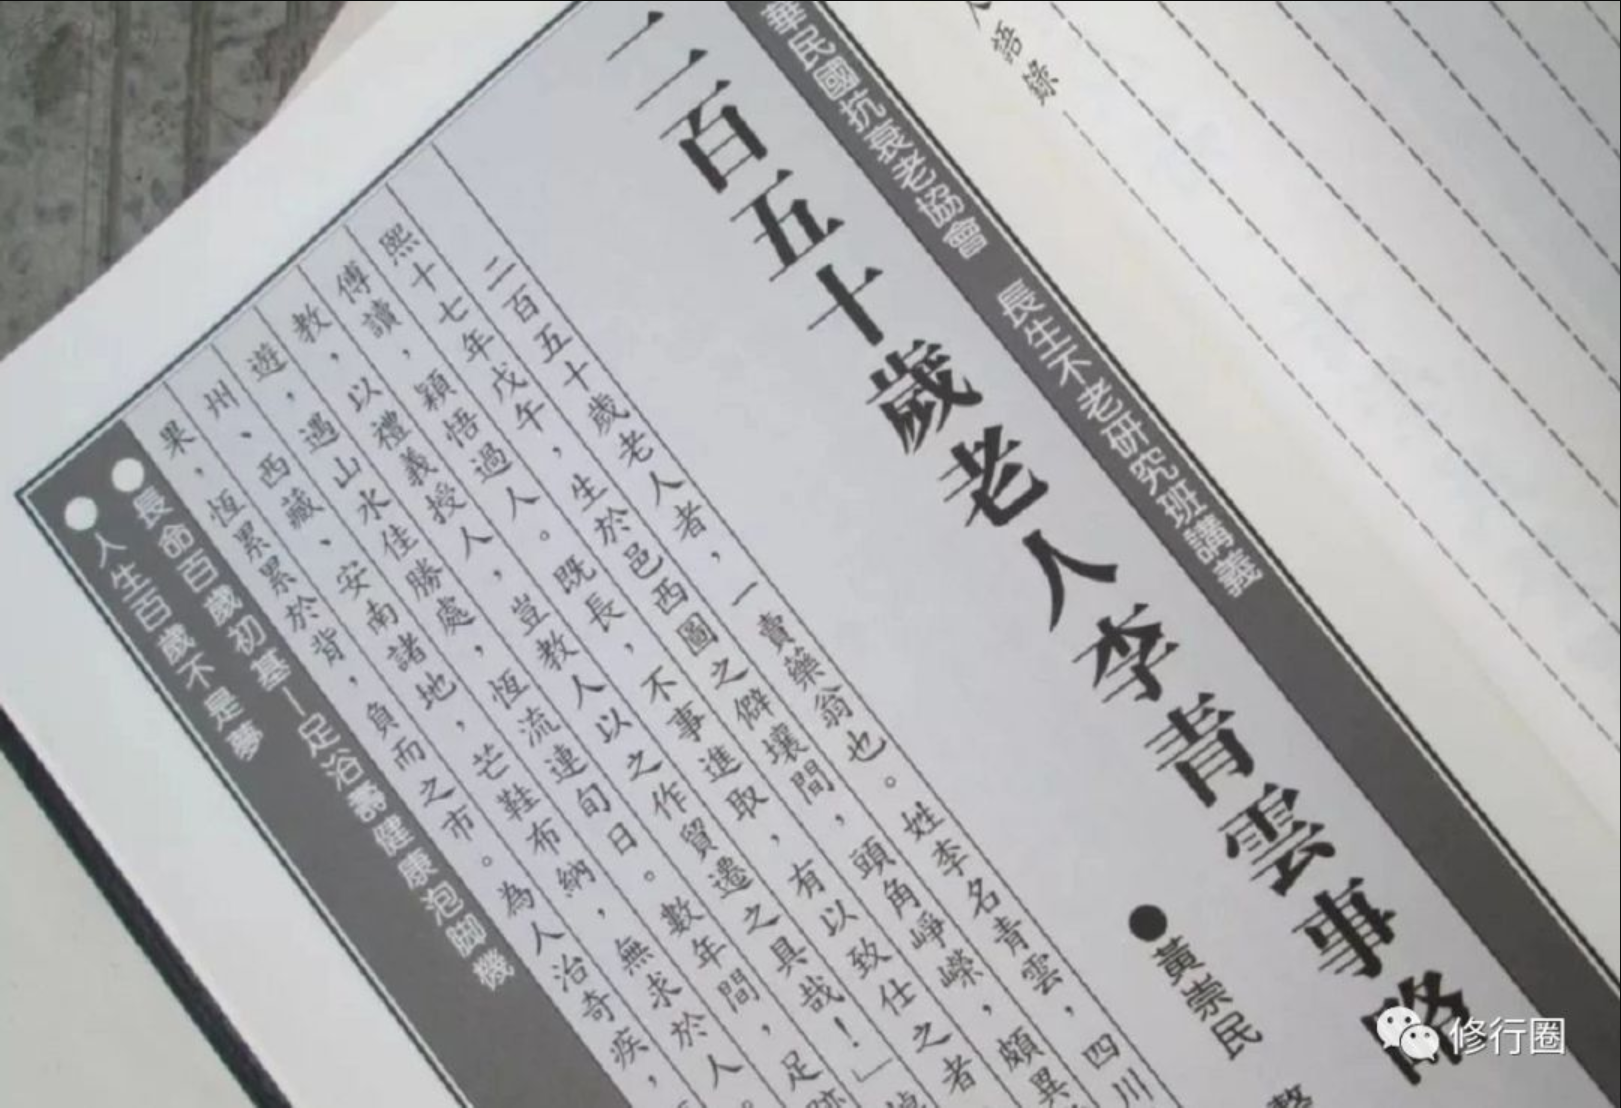 語錄
華民國抗衰老協會 長生不老研究班講義
二百五十歲老人李青雲事略
●黃崇民
二百五十歲老人者，一賣藥翁也。姓李名青雲，四川
熙十七年戊午，生於邑西圖之僻壤間，頭角崢嶸，頗異
傅讀，穎悟過人。既長，不事進取，有以致仕之者
教，以禮義授人，豈教人以之作貿遷之具哉！」
遊，遇山水佳勝處，恆流連旬日。數年間，足跡
州、西藏、安南諸地，芒鞋布納，無求於人。
果，恆累累於背，負而之市。為人治奇疾，
●長命百歲初基—足浴壽健康泡脚機
●人生百歲不是夢
修行圈